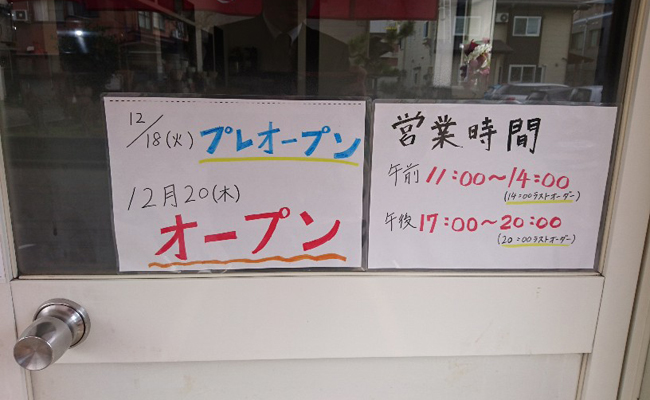 12/18(火) プレオープン
12月20(木)
オープン
営業時間
午前 11:00〜14:00
(14:00ラストオーダー)
午後 17:00〜20:00
(20:00ラストオーダー)